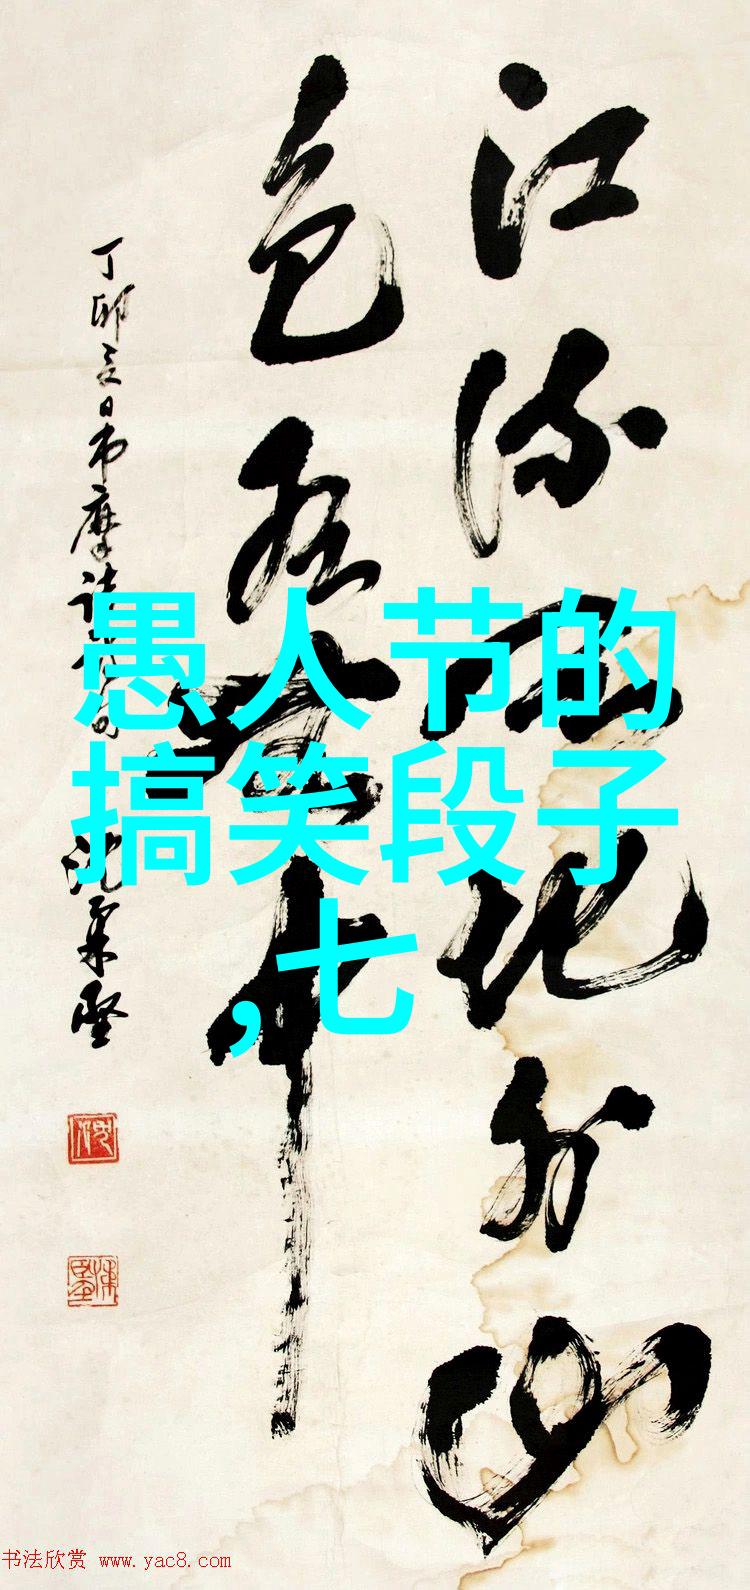 江流天地外山
色有无中
丁卯夏日书摩诘
愚人节的
搞笑段子
,七
书法欣赏 www.yac8.com